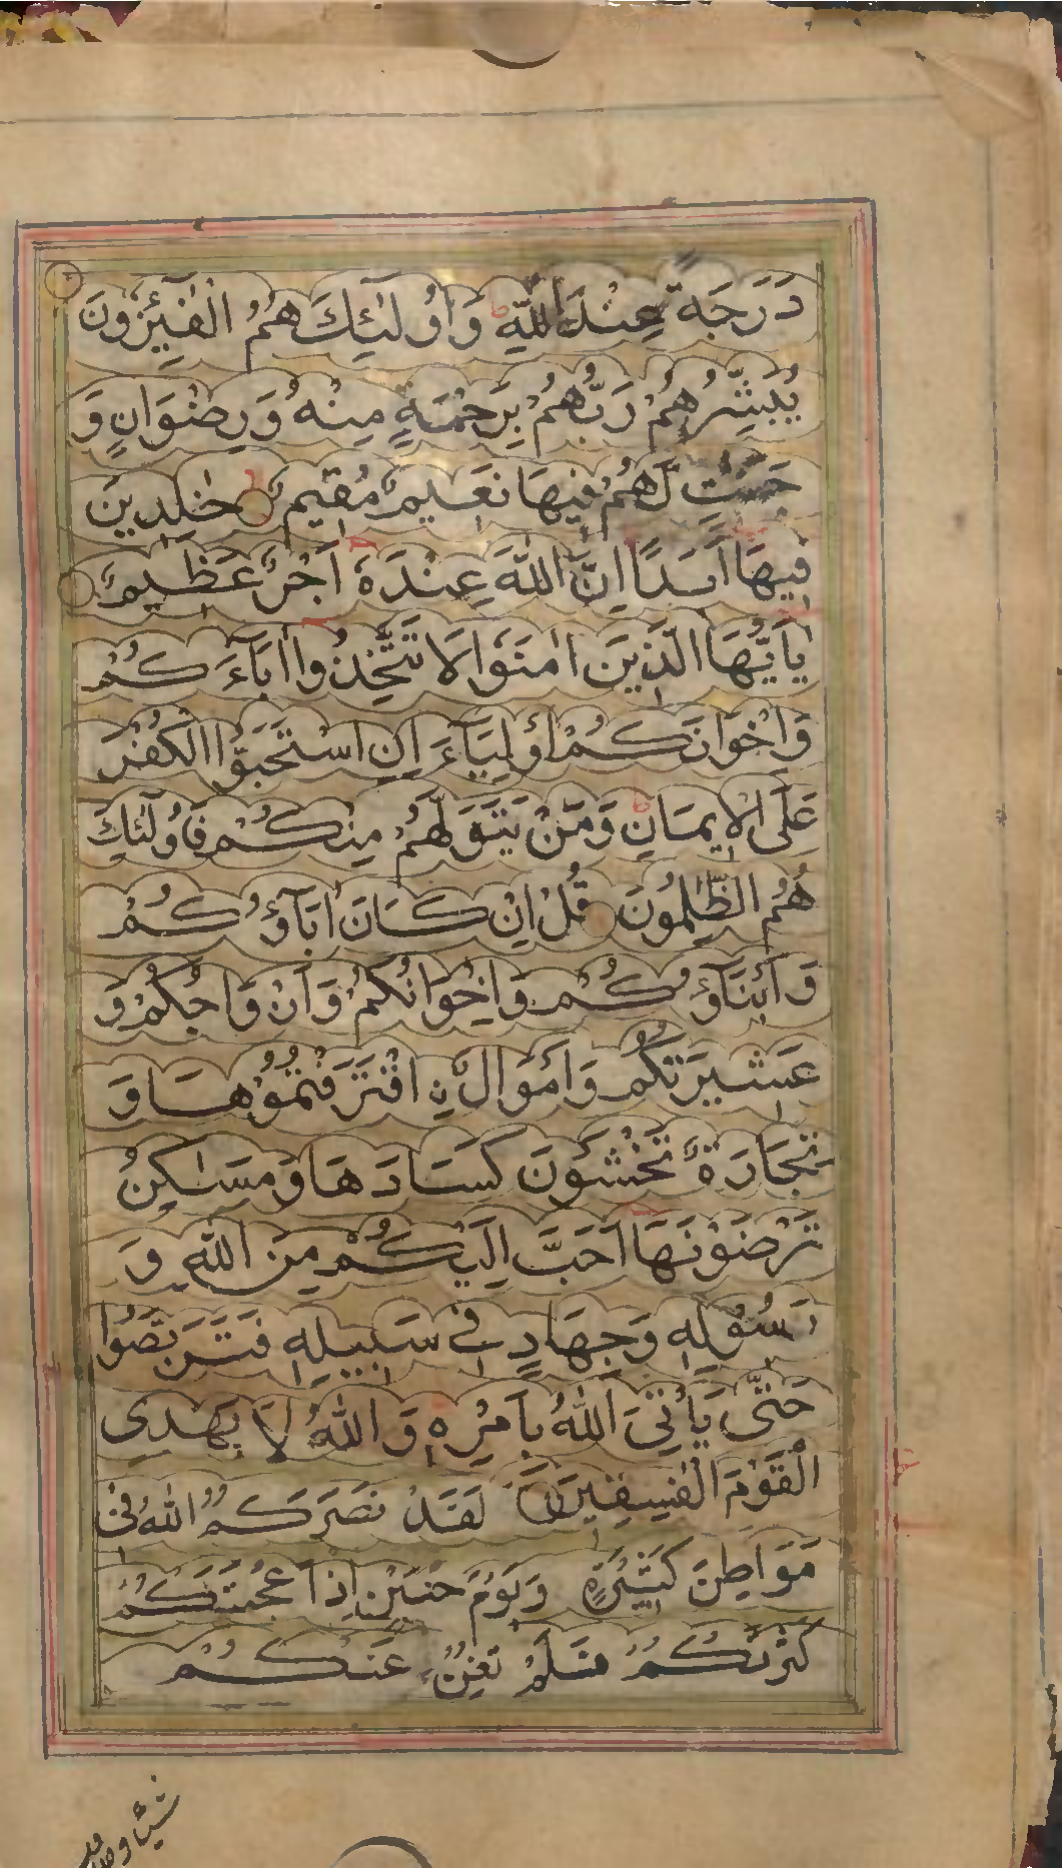 دَرَجَةً عِنْدَ اللّٰهِ وَاُولٰٓئِكَ هُمُ الْفَآئِزُونَ
يُبَشِّرُهُمْ رَبُّهُمْ بِرَحْمَةٍ مِنْهُ وَرِضْوَانٍ وَ
جَنّٰتٍ لَّهُمْ فِيهَا نَعِيمٌ مُقِيمٌ خٰلِدِينَ
فِيهَا اَبَدًا اِنَّ اللّٰهَ عِنْدَهٗ اَجْرٌ عَظِيمٌ
يٰٓاَيُّهَا الَّذِينَ اٰمَنُوا لَا تَتَّخِذُوا اٰبَآءَ كُمْ
وَاِخْوَانَكُمْ اَوْلِيَآءَ اِنِ اسْتَحَبُّوا الْكُفْرَ
عَلَى الْاِيمَانِ وَمَنْ يَتَوَلَّهُمْ مِنْكُمْ فَاُولٰٓئِكَ
هُمُ الظّٰلِمُونَ قُلْ اِنْ كَانَ اٰبَآؤُكُمْ
وَاَبْنَآؤُكُمْ وَاِخْوَانُكُمْ وَاَزْوَاجُكُمْ وَ
عَشِيرَتُكُمْ وَاَمْوَالٌ نِ اقْتَرَفْتُمُوْهَا وَ
تِجَارَةٌ تَخْشَوْنَ كَسَادَهَا وَمَسٰكِنُ
تَرْضَوْنَهَا اَحَبَّ اِلَيْكُمْ مِنَ اللّٰهِ وَ
رَسُوْلِهٖ وَجِهَادٍ فِي سَبِيلِهٖ فَتَرَبَّصُوا
حَتّٰى يَاْتِىَ اللّٰهُ بِاَمْرِهٖ وَاللّٰهُ لَا يَهْدِى
الْقَوْمَ الْفٰسِقِينَ لَقَدْ نَصَرَكُمُ اللّٰهُ فِى
مَوَاطِنَ كَثِيْرَةٍ وَيَوْمَ حُنَيْنٍ اِذْ اَعْجَبَتْكُمْ
كَثْرَتُكُمْ فَلَمْ تُغْنِ عَنْكُمْ
شَيْئًا